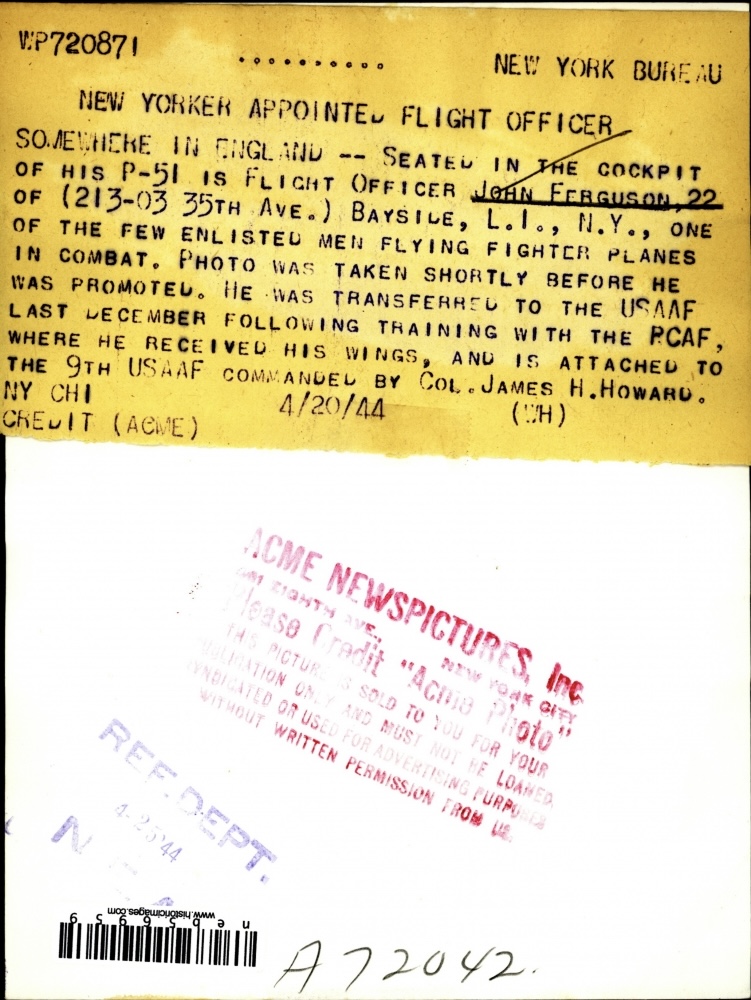 WP720871
..........
NEW YORK BUREAU
NEW YORKER APPOINTED FLIGHT OFFICER
SOMEWHERE IN ENGLAND -- SEATED IN THE COCKPIT
OF HIS P-51 IS FLIGHT OFFICER JOHN FERGUSON, 22
OF (213-03 35TH AVE.) BAYSIDE, L.I., N.Y., ONE
OF THE FEW ENLISTED MEN FLYING FIGHTER PLANES
IN COMBAT. PHOTO WAS TAKEN SHORTLY BEFORE HE
WAS PROMOTED. HE WAS TRANSFERRED TO THE USAAF
LAST DECEMBER FOLLOWING TRAINING WITH THE RCAF,
WHERE HE RECEIVED HIS WINGS, AND IS ATTACHED TO
THE 9TH USAAF COMMANDED BY COL. JAMES H. HOWARD.
NY CHI 4/20/44 (WH)
CREDIT (ACME)
ACME NEWSPICTURES, Inc.
EIGHTH AVE., NEW YORK CITY
Please Credit "Acme Photo"
THIS PICTURE IS SOLD TO YOU FOR YOUR
PUBLICATION ONLY AND MUST NOT BE LOANED,
SYNDICATED OR USED FOR ADVERTISING PURPOSES
WITHOUT WRITTEN PERMISSION FROM US.
REF. DEPT.
4-25-44
N E A
www.historicimages.com
neb56959
A72042.